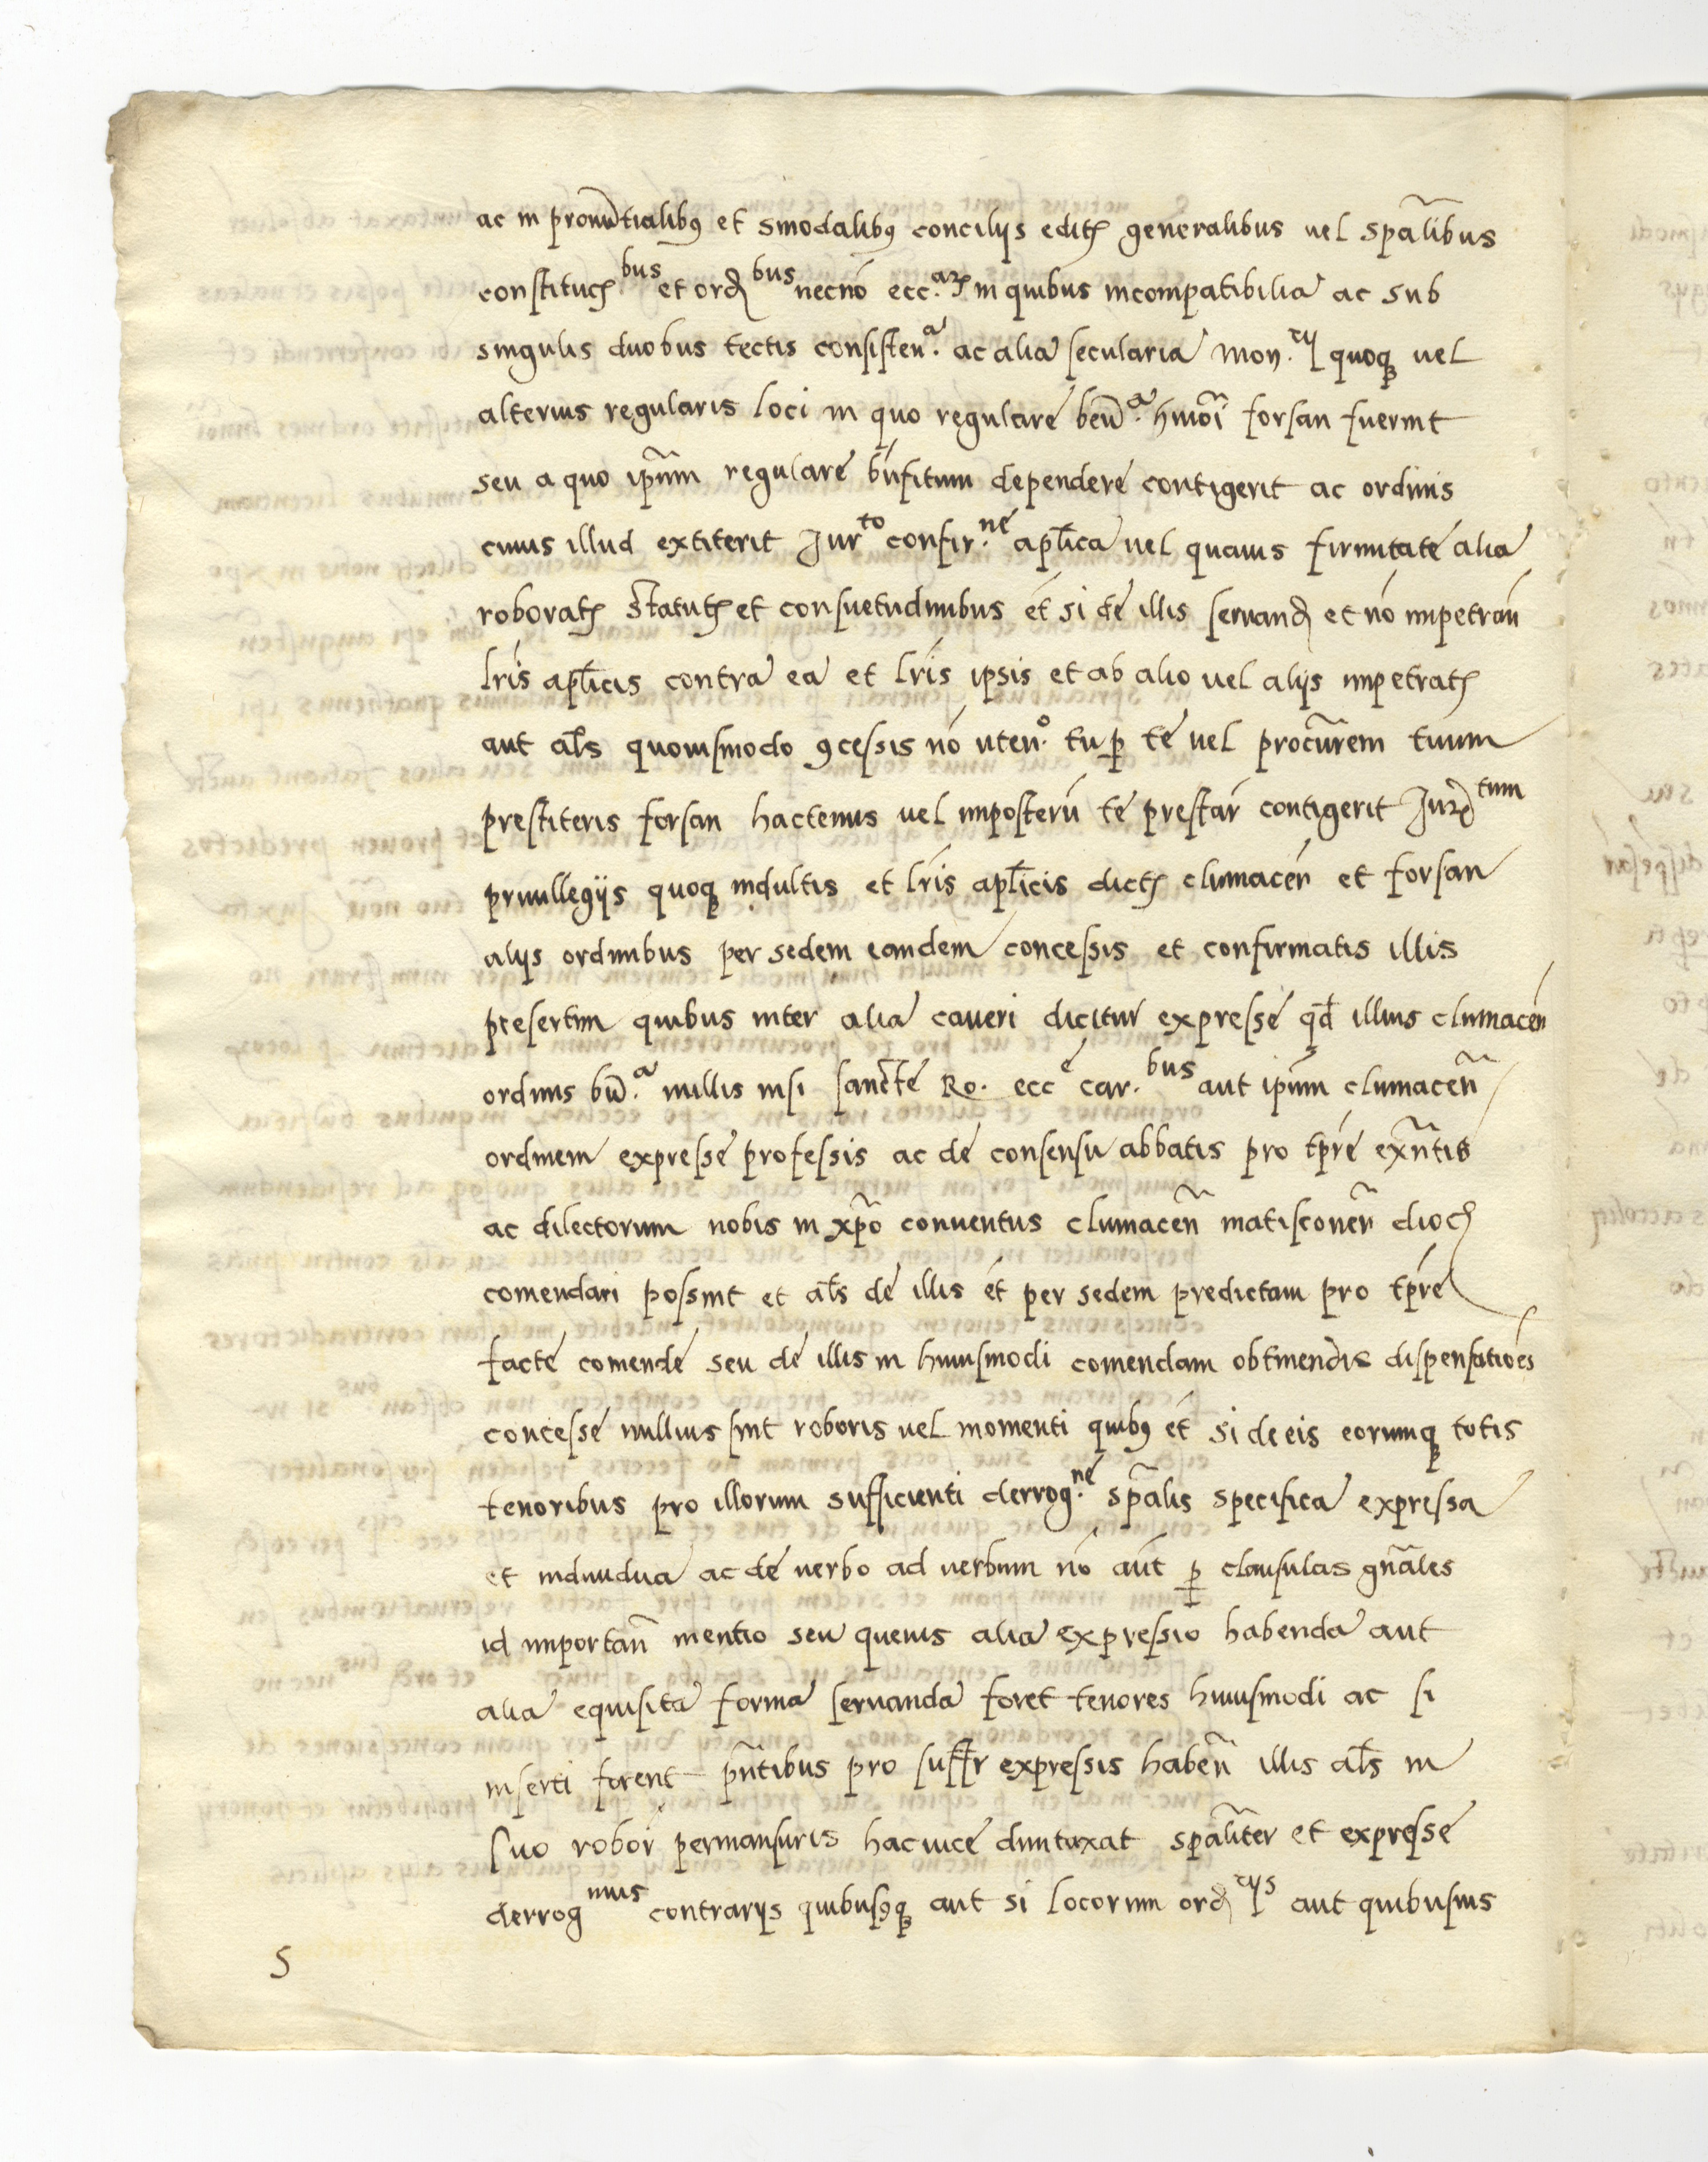 ac in prouintialibꝰ et sinodalibꝰ concilijs editꝭ generalibus uel sp̃alibus
constitucꝭ bus et orđ bus necnõ ecc.arꝭ in quibus incompatibilia ac sub
singulis duobus tectis consisten.a ac alia secularia mon.cij quoqꝫ uel
alterius regularis loci in quo regulare ben̄.a hmõi forsan fuerint
seu a quo ip̃um regulare bñfitium dependere contigerit ac ordinis
cuius illud extiterit Jurto confir.ne apl̃ica uel quauis firmitate alia
roboratꝭ statutꝭ et consuetudinibus ét si de illis seruanđ et nõ impetrañ
lr̃is apl̃icis contra ea et lr̃is ipsis et ab alio uel alijs impetratꝭ
aut al̃s quouismodo ꝯcessis nõ uten.o tu ꝑ te uel procur̃em tuum
prestiteris forsan hactenus uel imposterũ te prestar̃ contigerit Jurãtum
priuillegijs quoqꝫ indultis et lr̃is apl̃icis dictꝭ cluniaceñ et forsan
alijs ordinibus per sedem eandem concessis et confirmatis illis
presertim quibus inter alia caueri dicitur expresse qđ illius cluniaceñ
ordinis bñ.a nullis nisi sancte Ro. ecce car.bus aut ip̃um cluniaceñ
ordinem expresse professis ac de consensu abbatis pro tp̃re exñtis
ac dilectorum nobis in xp̃o conuentus cluniaceñ matisconeñ diocꝭ
comendari possint et al̃s de illis ét per sedem predictam pro tp̃re
facte comende seu de illis in huiusmodi comendam obtinendis dispensatiões
concesse nullius sint roboris uel momenti quibꝰ ét si de eis eorumqꝫ totis
tenoribus pro illorum sufficienti derrog.ne sp̃alis specifica expressa
et indiuidua ac de uerbo ad uerbum nõ aũt ꝑ clausulas gñales
id importañ mentio seu queuis alia expressio habenda aut
alia equisita forma seruanda foret tenores huiusmodi ac si
inserti forent pñtibus pro suffr expressis habeñ illis al̃s in
suo robor̃ permansuris hac uice duntaxat sp̃aliter et expresse
derrogmus contrarijs quibuscꝫqꝫ aut si locorum orđcijs aut quibusuis
5